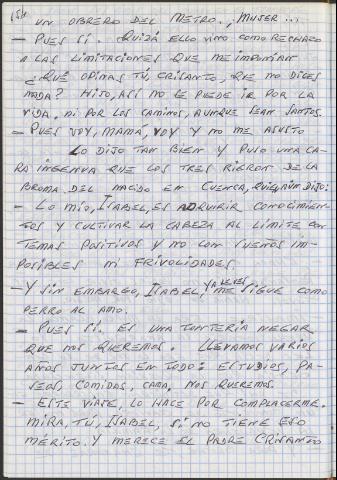 154
UN OBRERO DEL METRO., MUJER...
- PUES SÍ. QUIZÁ ELLO VINO COMO RECHAZO
A LAS LIMITACIONES QUE ME IMPONÍAN
¿QUÉ OPINAS TÚ, CRISANTO, QUE NO DICES
NADA? HIJO, ASÍ NO SE PUEDE IR POR LA
VIDA, NI POR LOS CAMINOS, AUNQUE SEAN SANTOS.
- PUES VOY, MAMÁ, VOY Y NO ME ASUSTO
LO DIJO TAN BIEN Y PUSO UNA CA-
RA INGENUA QUE LOS TRES RIERON DE LA
BROMA DEL NACIDO EN CUENCA, QUIEN AÚN DIJO:
- LO MÍO, ISABEL, ES ADQUIRIR CONOCIMIEN-
TOS Y CULTIVAR LA CABEZA AL LÍMITE CON
TEMAS POSITIVOS Y NO CON SUEÑOS IM-
POSIBLES NI FRIVOLIDADES.
- Y SIN EMBARGO, ISABEL, YA LE VES, ME SIGUE COMO
PERRO AL AMO.
- PUES SÍ. ES UNA TONTERÍA NEGAR
QUE NOS QUEREMOS. LLEVAMOS VARIOS
AÑOS JUNTOS EN TODO: ESTUDIOS, PA-
SEOS, COMIDAS, CAMA. NOS QUEREMOS.
- ESTE VIAJE, LO HACE POR COMPLACERME.
MIRA, TÚ, ISABEL, SI NO TIENE ESO
MÉRITO. Y MERECE EL PADRE CRISANTO